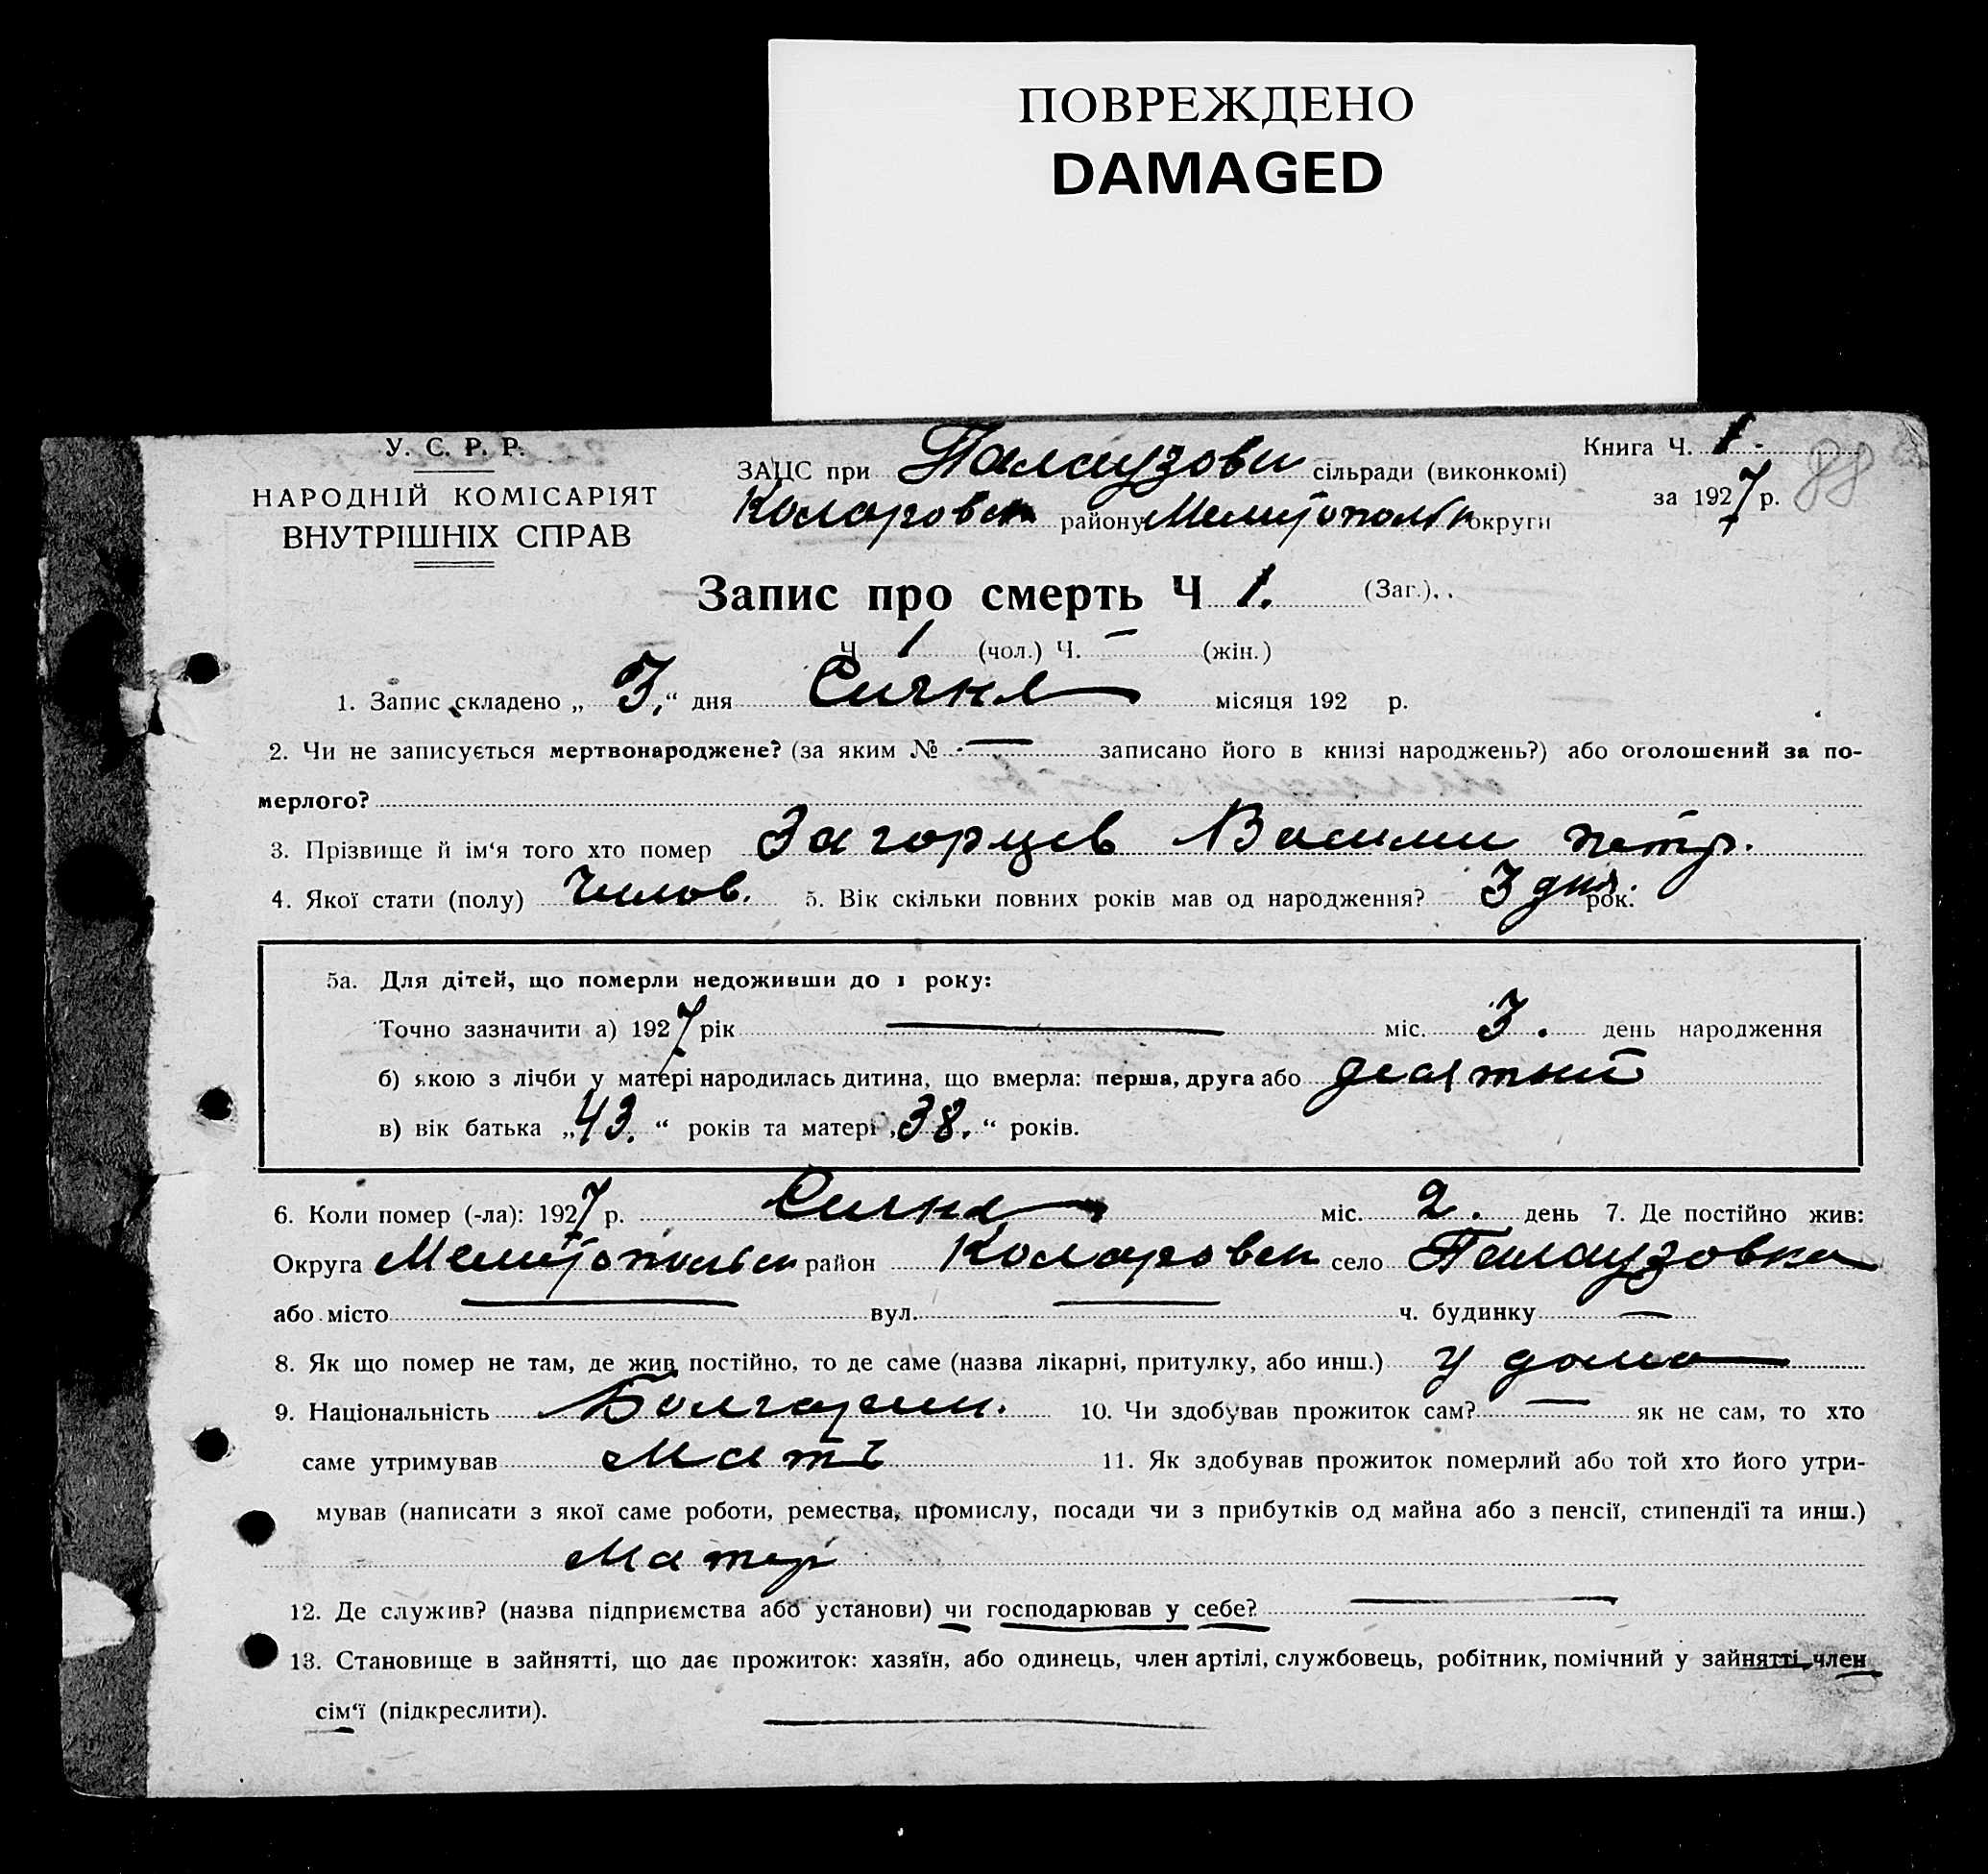 ПОВРЕЖДЕНО
DAMAGED
У. С. Р. Р.
НАРОДНІЙ КОМІСАРІЯТ
ВНУТРІШНІХ СПРАВ
ЗАЦС при Палаузовк сільради (виконкомі)
Коларовск району Мелитопольск округи
Книга Ч. 1 -
за 1927 р. 88
Запис про смерть Ч 1. (Заг.)
Ч 1 (чол.) Ч. — (жін.)
1. Запис складено „ 3. “ дня Сичня місяця 192 р.
2. Чи не записується мертвонароджене? (за яким № — записано його в книзі народжень?) або оголошений за по-
мерлого?
3. Прізвище й ім‘я того хто помер Загорцев Василий петр.
4. Якої стати (полу) Чилов. 5. Вік скільки повних років мав од народження? 3 дня. рок.
5а. Для дітей, що померли недоживши до 1 року:
Точно зазначити а) 1927 рік — міс. 3. день народження
б) якою з лічби у матері народилась дитина, що вмерла: перша, друга або десятний
в) вік батька „ 43. “ років та матері „ 38. “ років.
6. Коли помер (-ла): 1927 р. Сичня міс. 2. день 7. Де постійно жив:
Округа Мелитопольск район Коларовск село Палаузовка
або місто — вул. — ч. будинку —
8. Як що помер не там, де жив постійно, то де саме (назва лікарні, притулку, або инш.) у дома
9. Національність Болгарин. 10. Чи здобував прожиток сам? — як не сам, то хто
саме утримував Мать 11. Як здобував прожиток померлий або той хто його утри-
мував (написати з якої саме роботи, ремества, промислу, посади чи з прибутків од майна або з пенсії, стипендії та инш.)
Матер
12. Де служив? (назва підприємства або установи) чи господарював у себе? —
13. Становище в зайнятті, що дає прожиток: хазяїн, або одинець, член артілі, службовець, робітник, помічний у зайнятті, член
сім‘ї (підкреслити). —